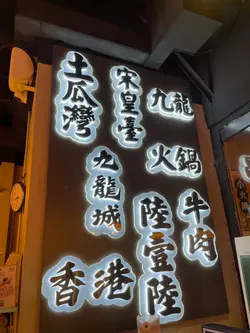 土瓜灣
宋皇臺
九龍
火鍋
九龍城
牛肉
陸壹陸
香港